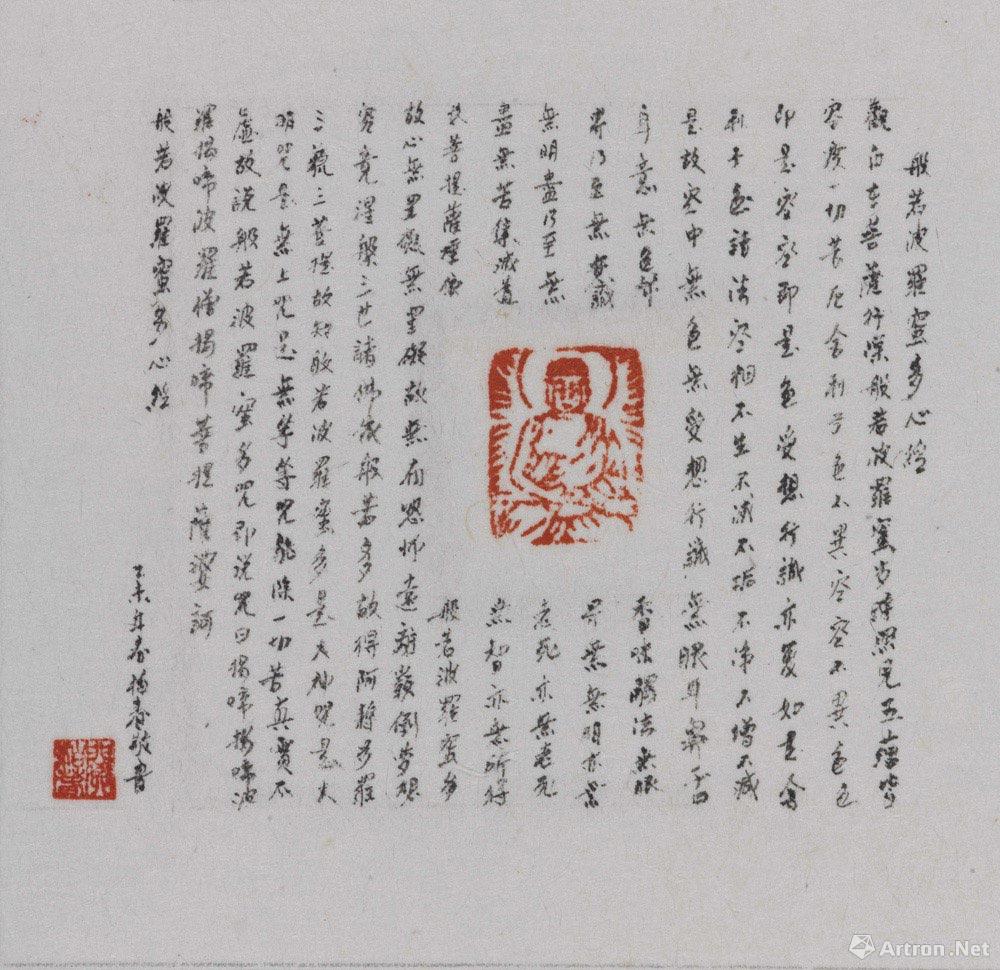 般若波羅蜜多心經
觀自在菩薩行深般若波羅蜜多時照見五蘊皆
空度一切苦厄舍利子色不異空空不異色色
即是空空即是色受想行識亦复如是舍
利子是諸法空相不生不滅不垢不淨不增不減
是故空中無色無受想行識無眼耳鼻舌
身意無色聲香味觸法無眼
界乃至無意識界無無明亦無
無明盡乃至無老死亦無老死
盡無苦集滅道無智亦無所得
故菩提薩埵依般若波羅蜜多
故心無罣礙無罣礙故無有恐怖遠離顛倒夢想
究竟涅槃三世諸佛依般若多故得阿耨多羅
三藐三菩提故知般若波羅蜜多是大神咒是大
明咒是無上咒是無等等咒能除一切苦真實不
虛故說般若波羅蜜多咒即說咒曰揭啼揭啼波
羅揭啼波羅僧揭啼菩提薩婆訶
般若波羅蜜多心經
乙未年春 春敬書
Artron.Net